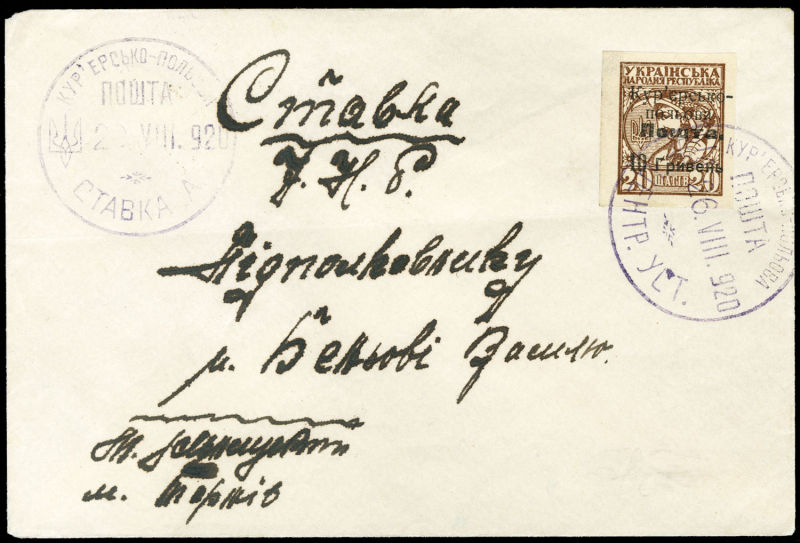 КУР'ЄРСЬКО-ПОЛЬОВА
ПОШТА
VIII. 920
СТАВКА А
УКРАЇНСЬКА
НАРОДНЯ РЕСПУБЛІКА
Кур'єрсько-
польова
Пошта
10 Гривень
20 ШАГІВ 20
КУР'ЄРСЬКО-ПОЛЬОВА
ПОШТА
26. VIII. 920
ЦЕНТР. УСТ.
Ставка
У. Н. Р.
Підполковнику
м. Беньові Василю.
м. Тернів